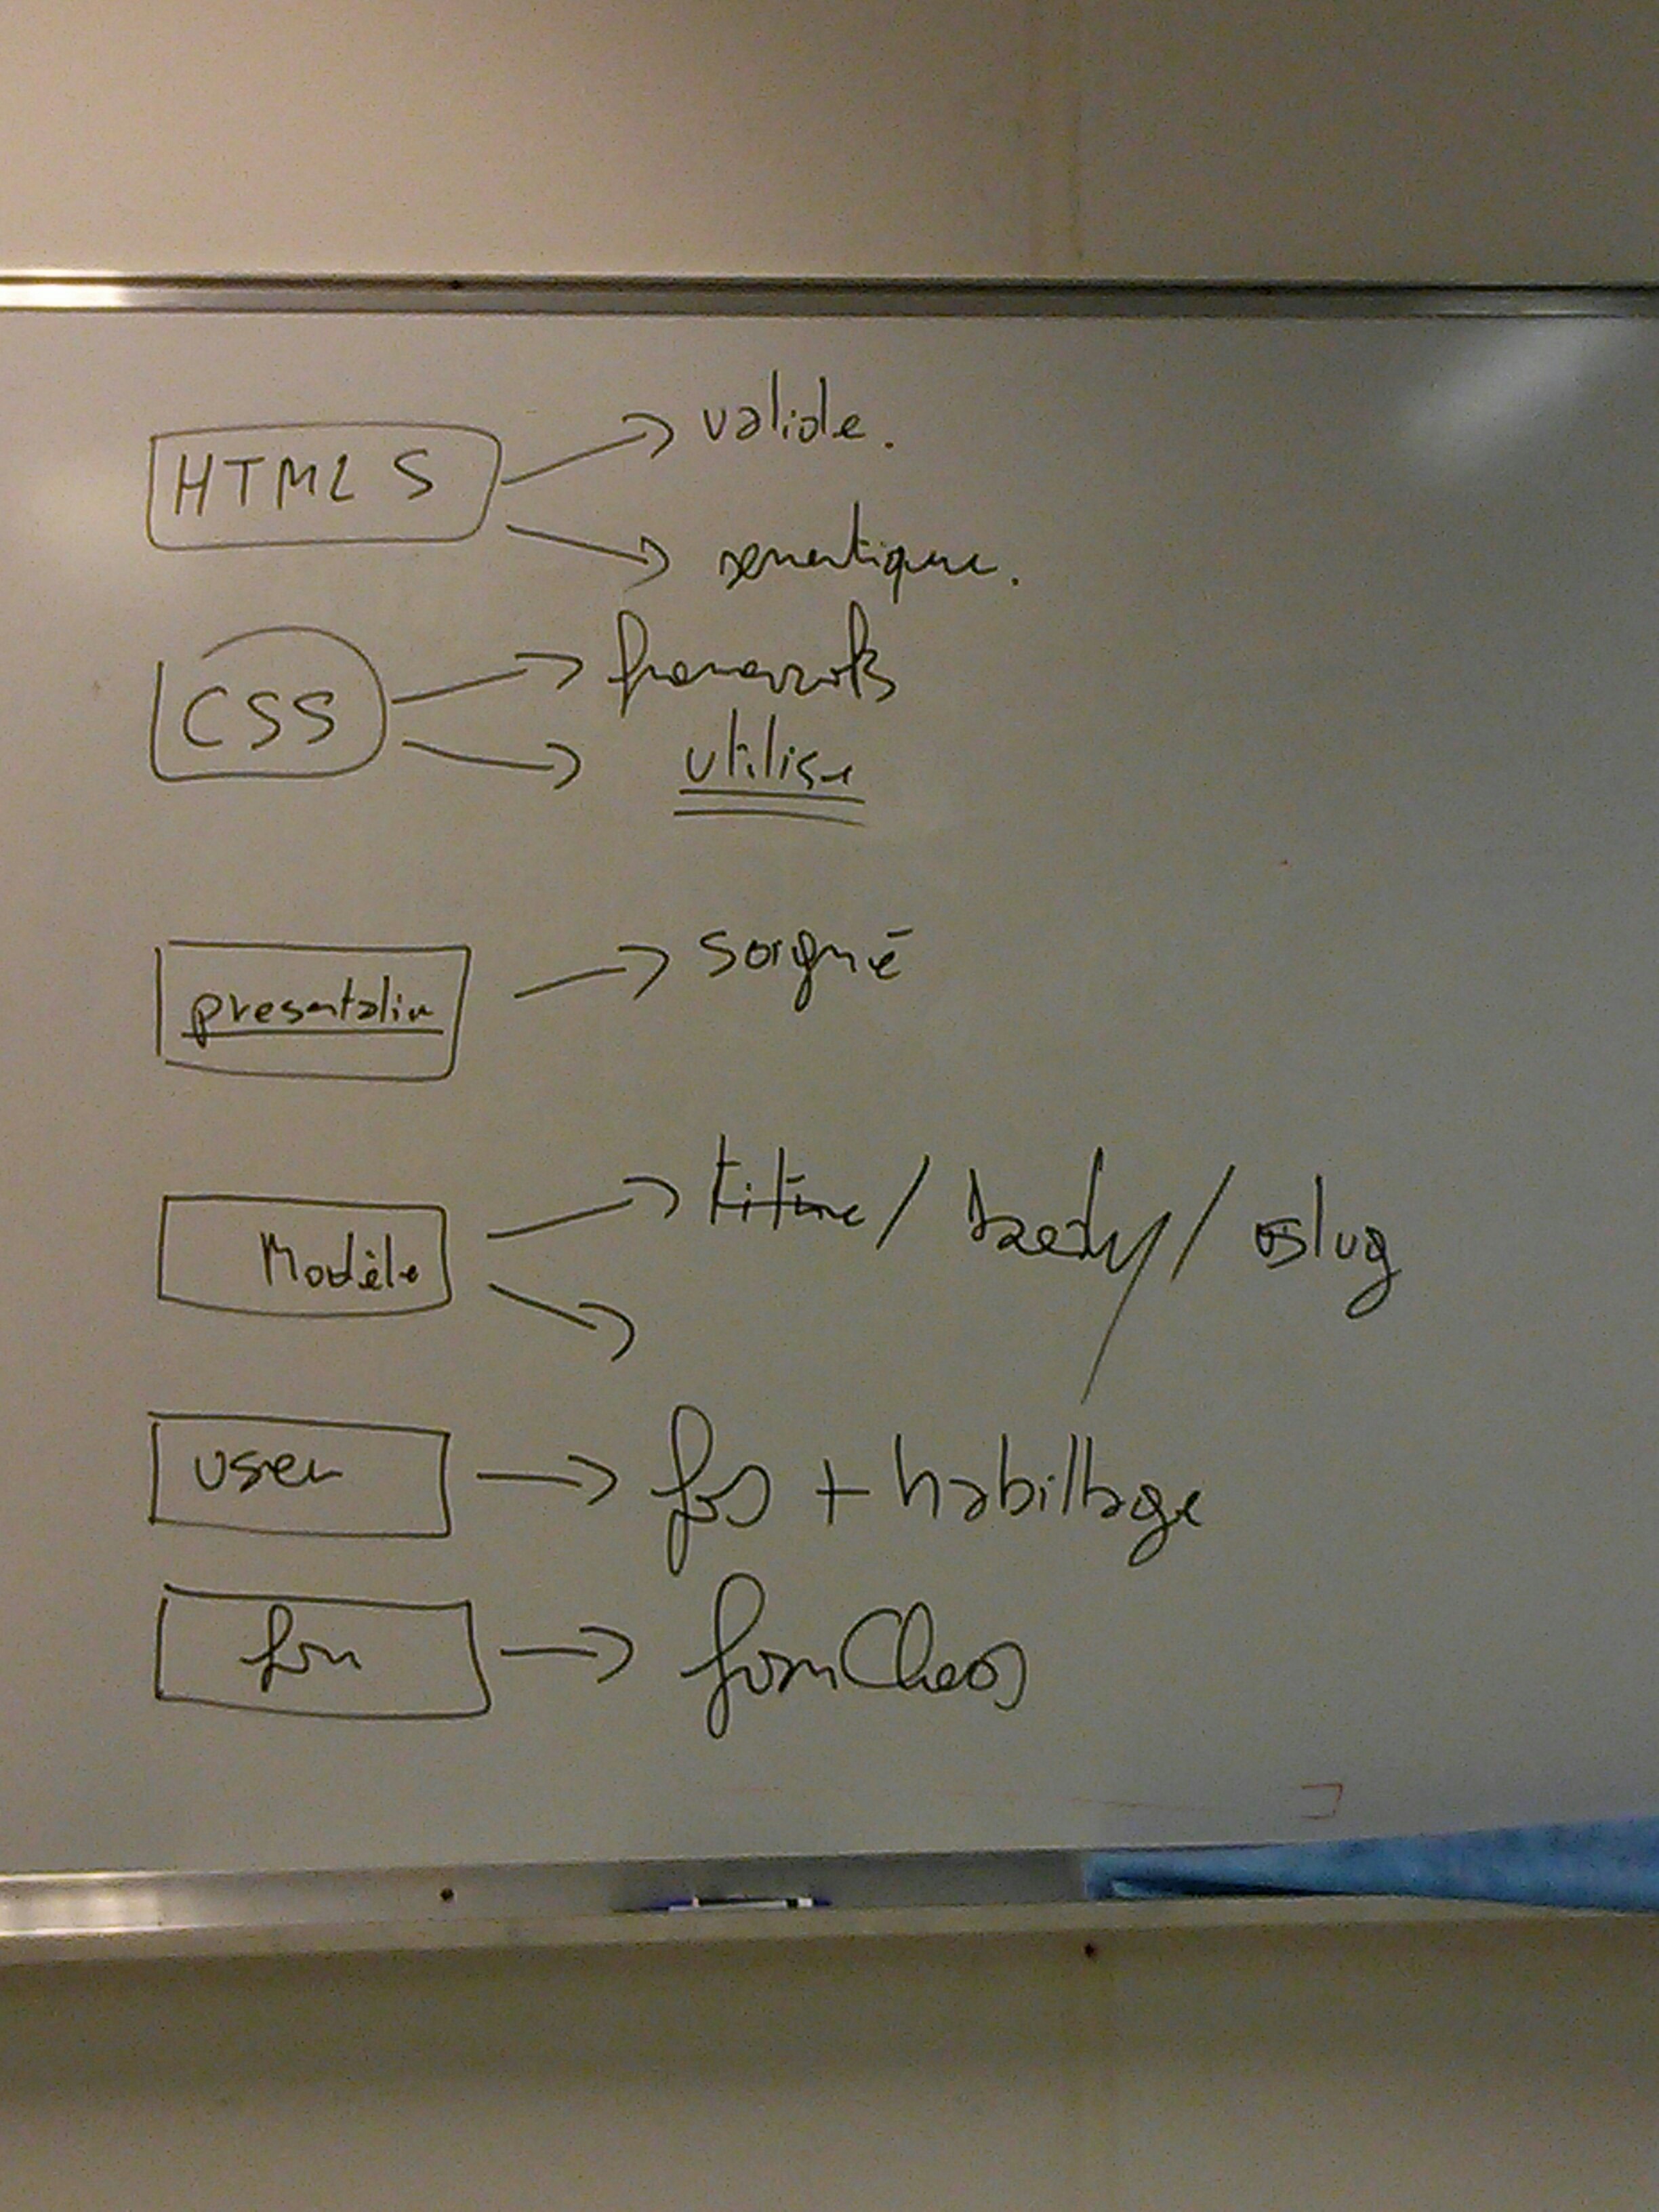 HTML 5 → valide.
→ semantique.
CSS → frameworks
→ utilise
presentation → soigné
Modèle → / body / slug
→
user → fos + habillage
form → formClass